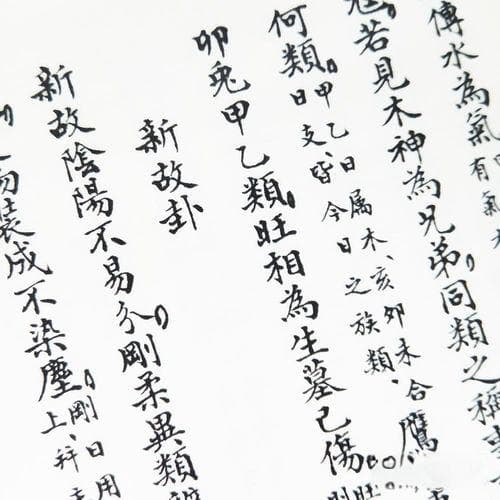 傳水為氣有氣
若見木神為兄弟同類之稱
何類甲乙日属木亥卯未合鷹
日支皆今日之族類
卯兎甲乙類旺相為生墓已傷
新故卦
新故陰陽不易分剛柔異類
裝成不染塵剛日用
上